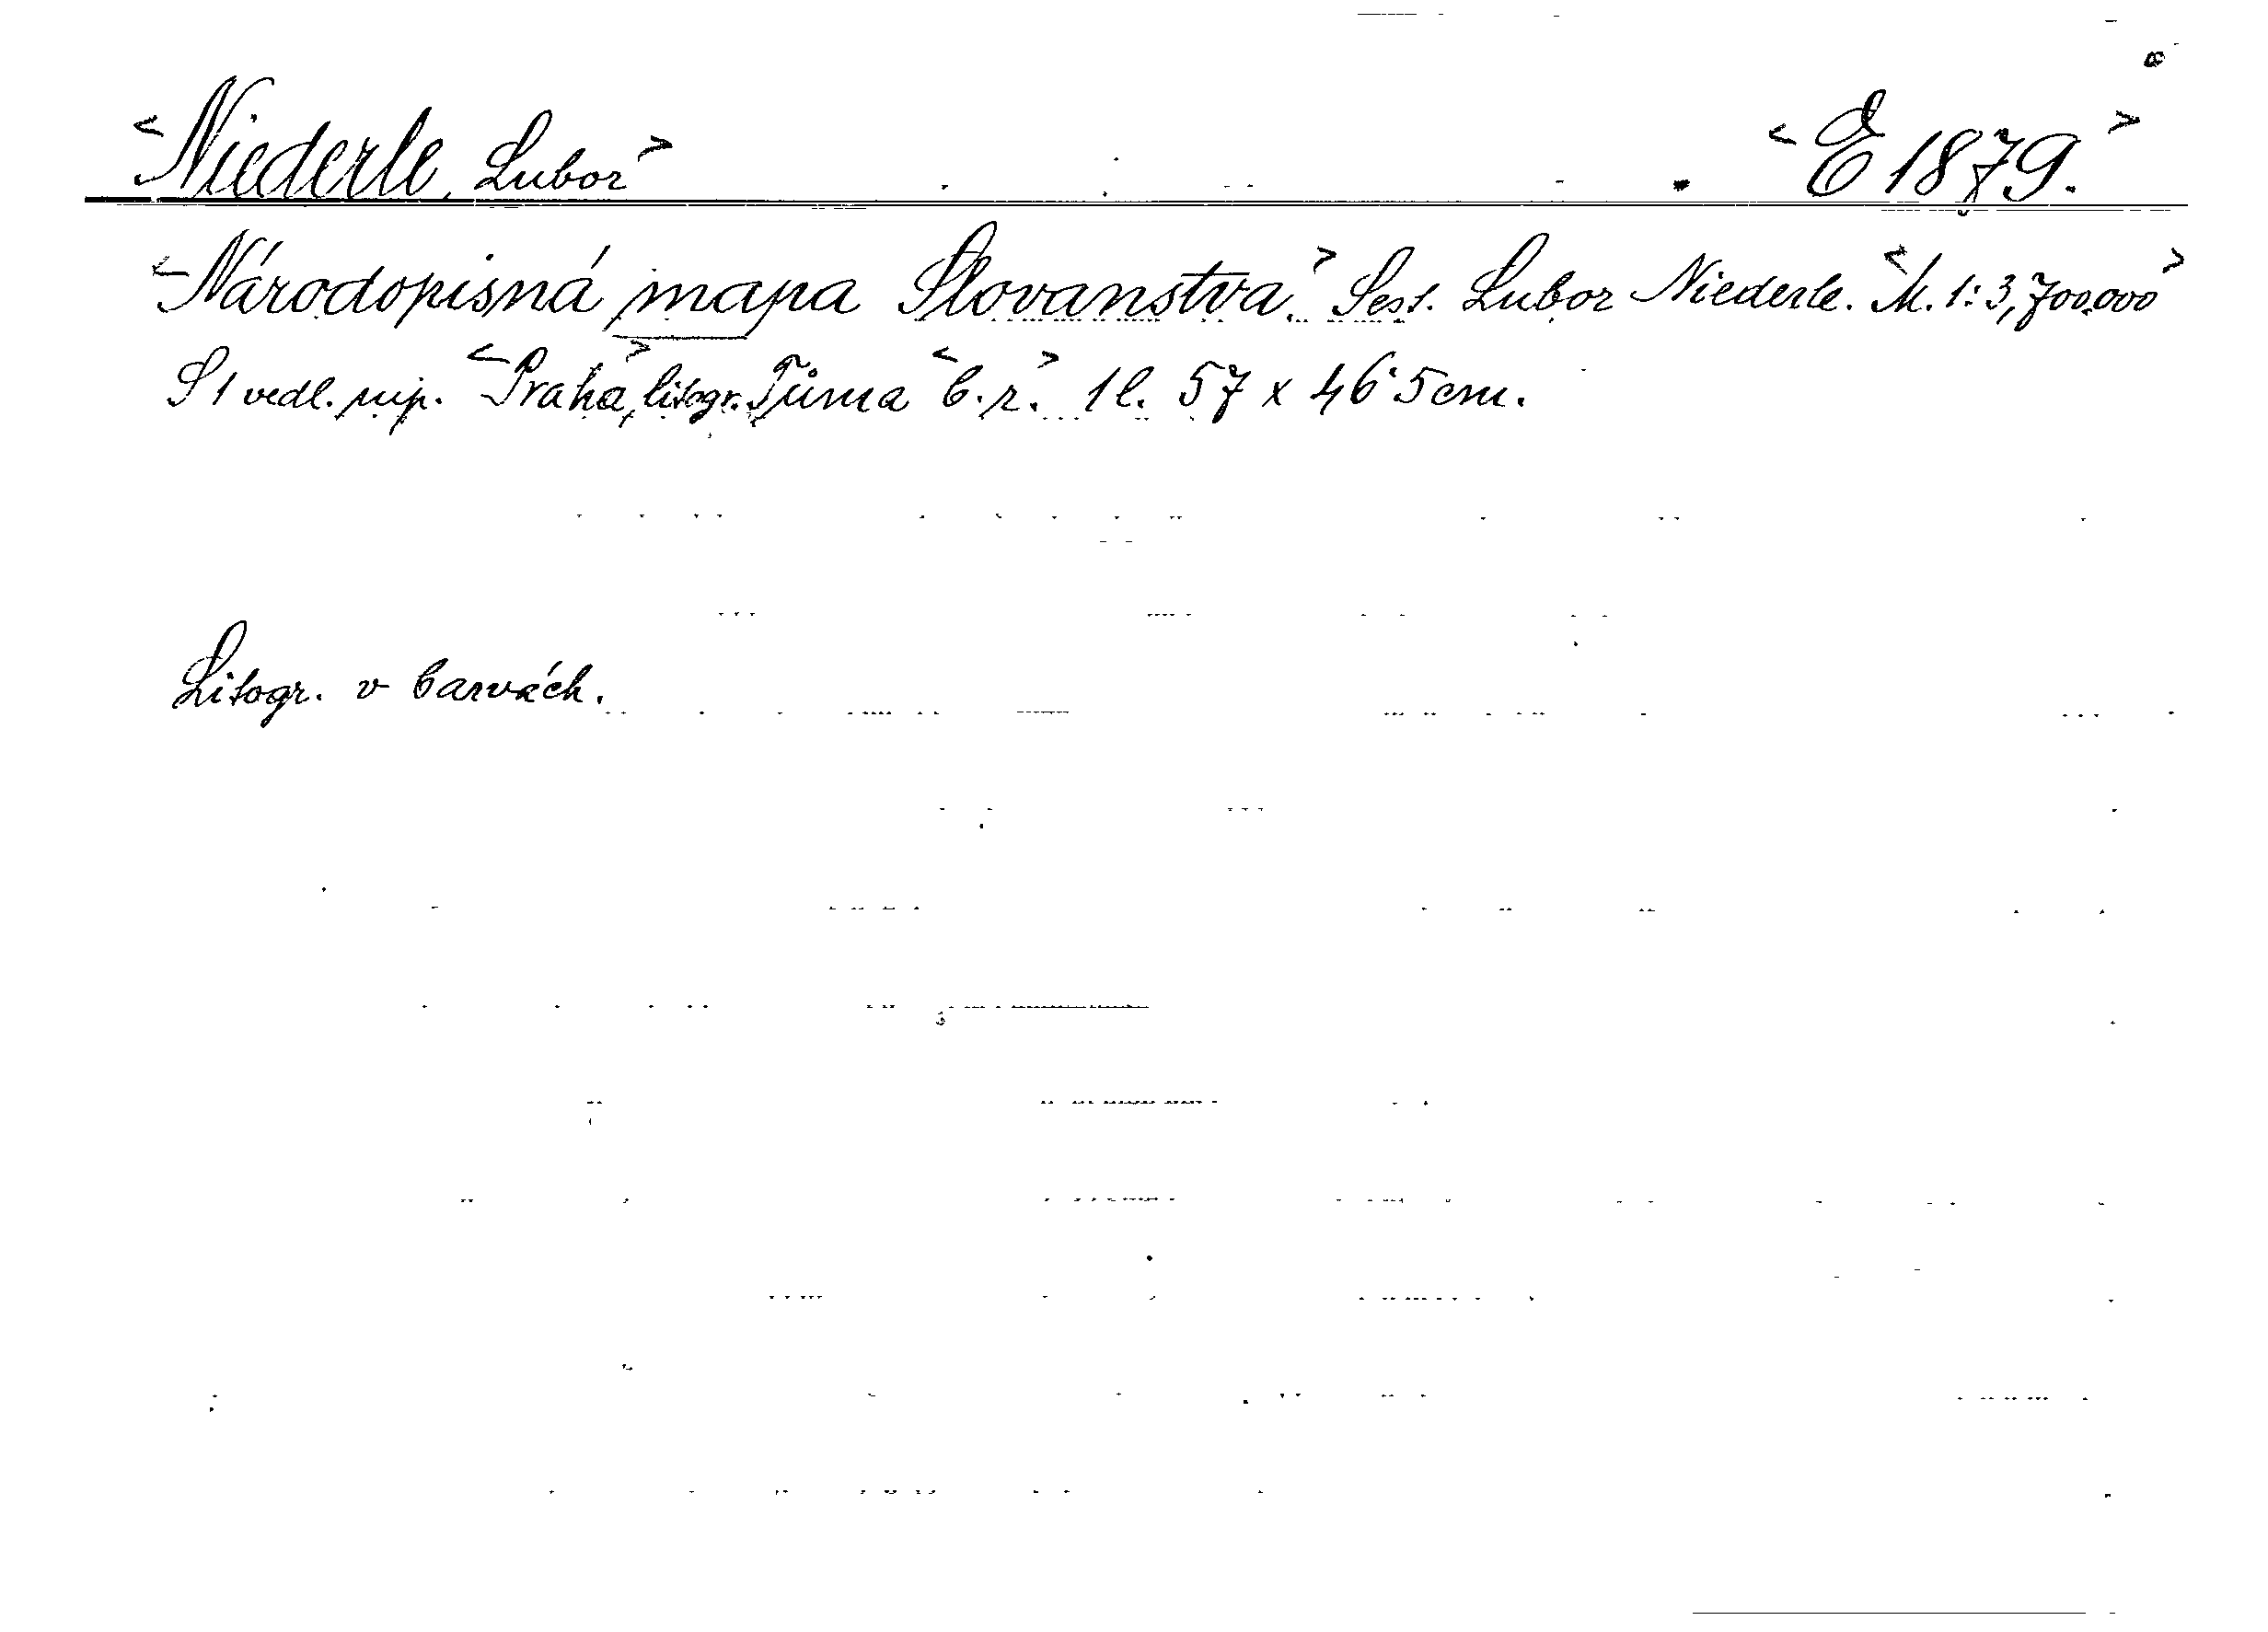 <Niederle, Lubor> <E 1879.>
<Národopisná mapa Slovanstva.> Sest. Lubor Niederle. <M. 1:3,700.000>
S 1 vedl. mp. <Praha,> litogr. Tůma <b.r.> 1 l. 57 x 46·5 cm.
Litogr. v barvách.